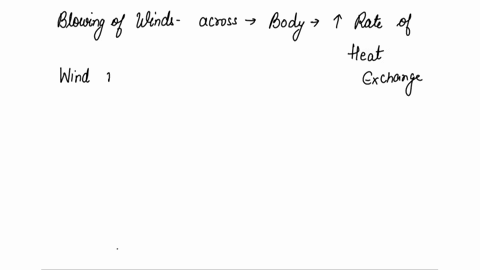 Blowing of Winds- across → Body → ↑ Rate of
Heat
Exchange
Wind